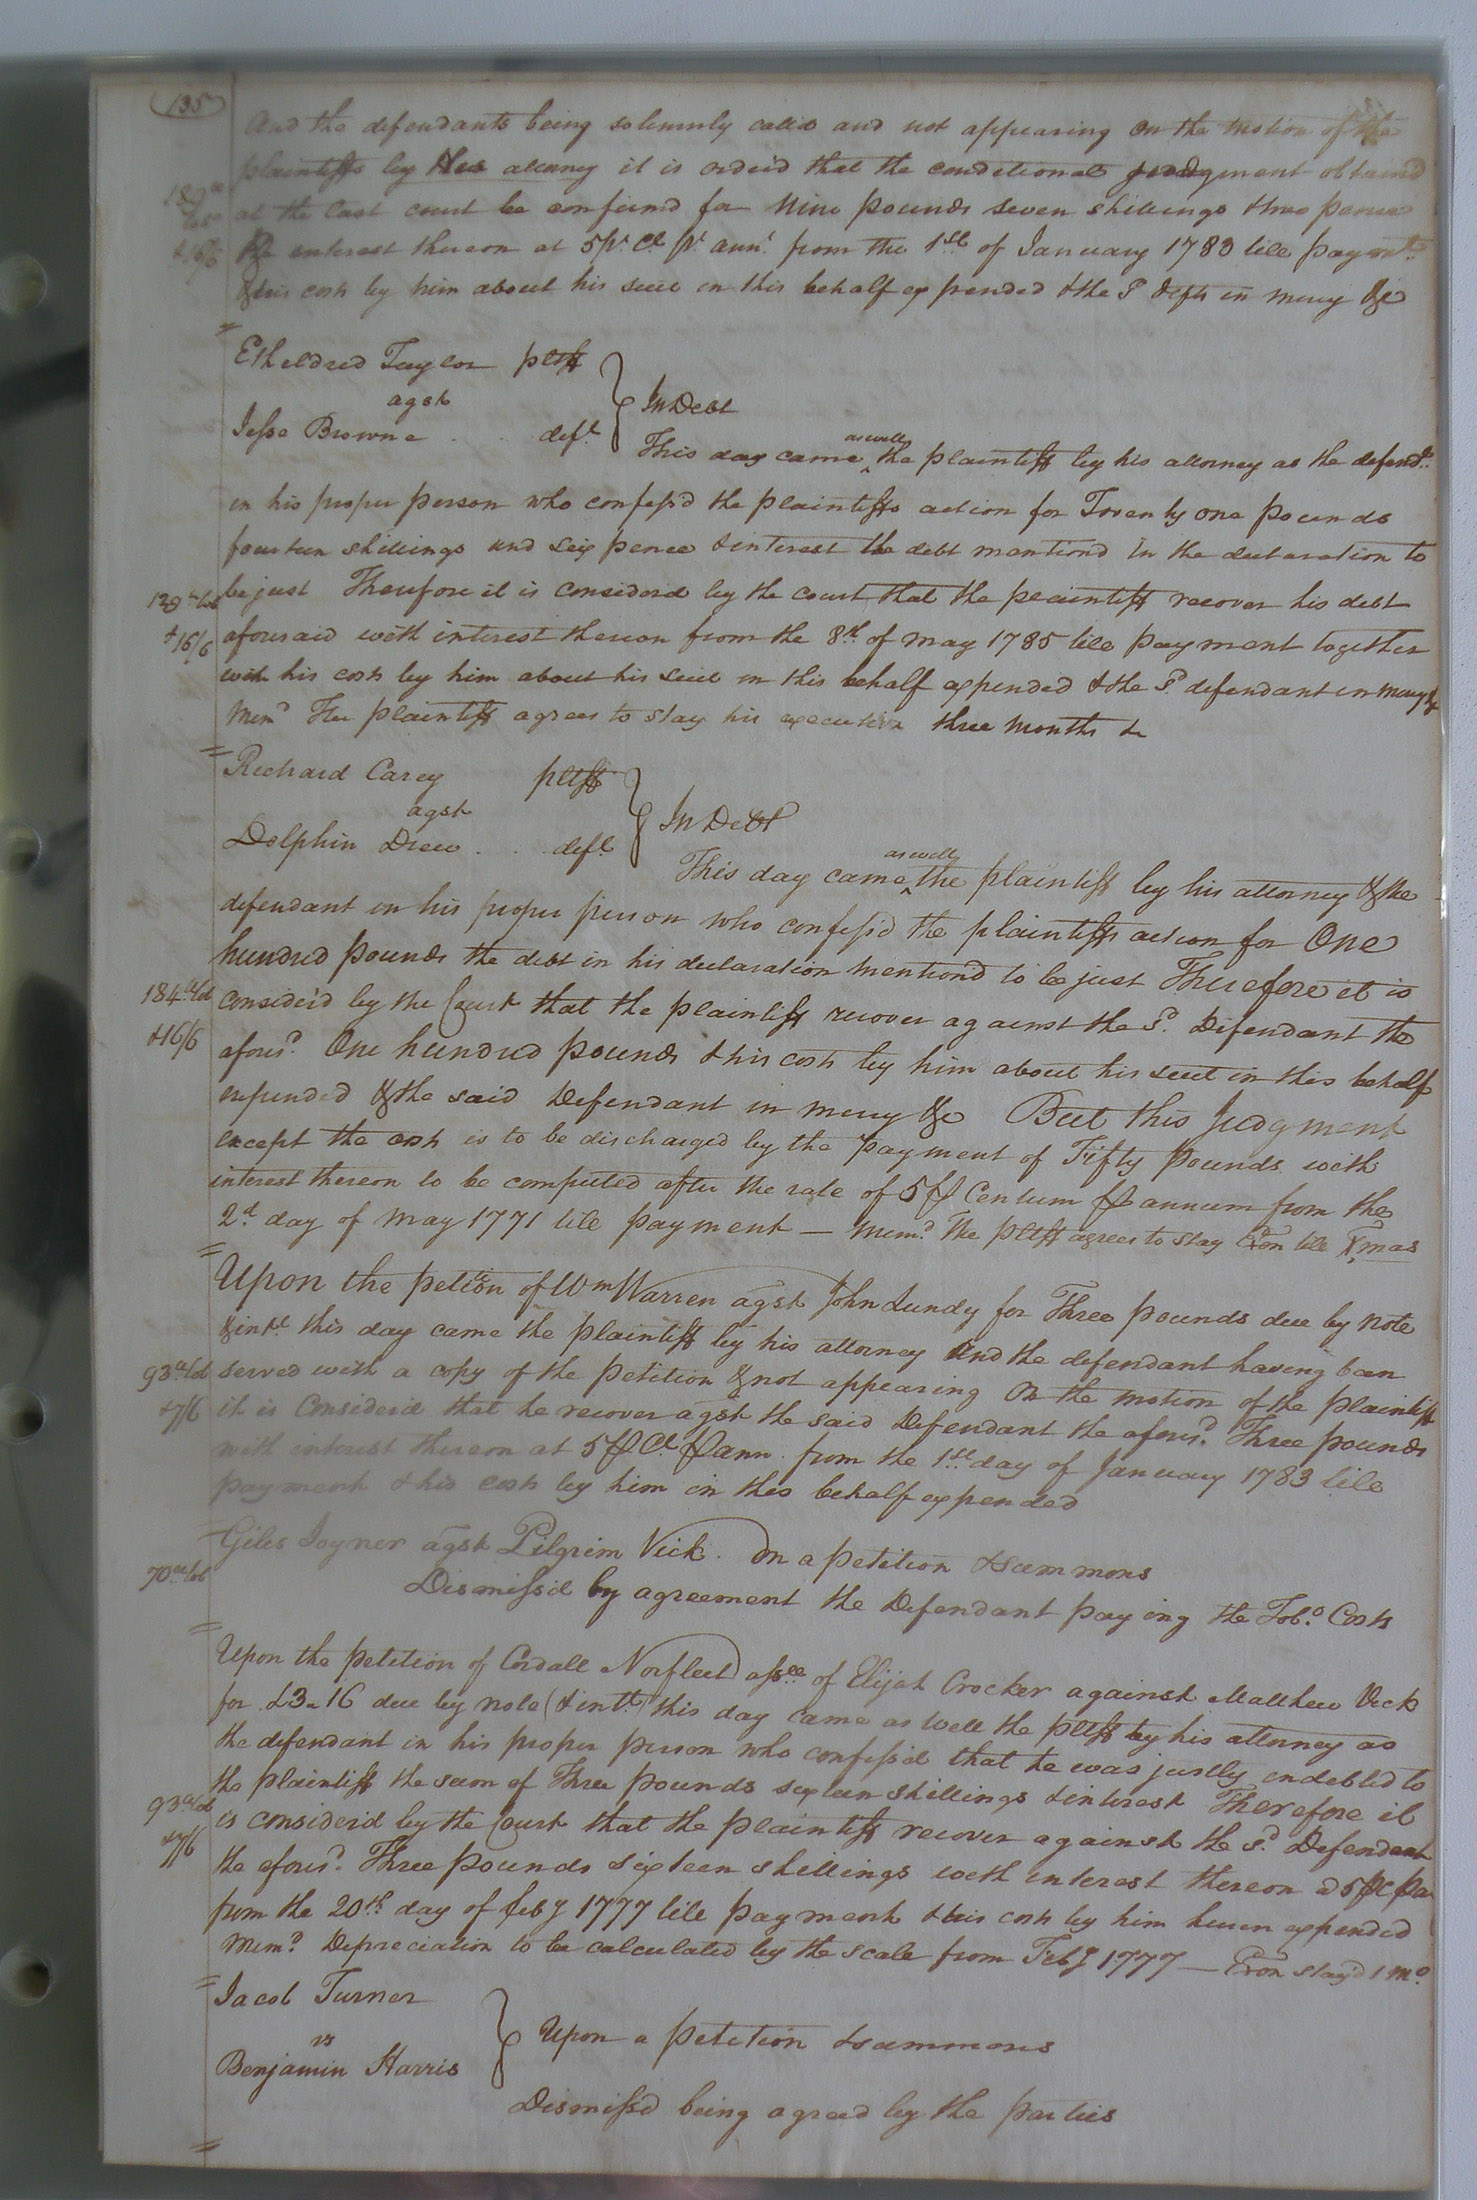 135
And the defendants being solemnly called and not appearing on the motion of the
plaintiffs by their attorney it is ordered that the conditional judgment obtained
at the last court be confirmd for Nine pounds seven shillings three pence
& interest thereon at 5 pr Ct pr annm from the 1st of January 1783 till paymt
& his costs by him about his suit in this behalf expended & the Sd defts in mercy &c
Etheldred Taylor pltff
agst
Jesse Browne deft
In Debt
This day came as well the plaintiff by his attorney as the defendt
in his proper person who confess'd the plaintiffs action for Twenty one pounds
fourteen shillings and six pence & interest the debt mentiond in the declaration to
be just Therefore it is considerd by the court that the plaintiff recover his debt
aforesaid with interest thereon from the 8th of may 1785 till payment together
& 16/6
with his costs by him about his suit in this behalf expended & the Sd defendant in mercy &c
Memd The plaintiff agrees to stay his execution three months &c
Richard Carey pltff
agst
Dolphin Drew deft
In Debt
This day came as well the plaintiff by his attorney & the
defendant in his proper person who confess'd the plaintiffs action for One
hundred pounds the debt in his declaration mentiond to be just Therefore it is
consider'd by the Court that the plaintiff recover against the Sd Defendant the
& 16/6
aforesd One hundred pounds & his costs by him about his suit in this behalf
expended & the said Defendant in mercy &c But this Judgment
except the costs is to be discharged by the payment of Fifty pounds with
interest thereon to be computed after the rate of 5 pr Centum pr annum from the
2d day of may 1771 till payment — Memd The pltff agrees to stay Exon till Xmas
Upon the petition of Wm Warren agst John Lundy for Three pounds due by note
& intt this day came the plaintiff by his attorney And the defendant having been
served with a copy of the petition & not appearing On the motion of the plaintiff
& 7/6
it is Considerd that he recover agst the said Defendant the aforesd Three pounds
with interest thereon at 5 pr Ct pr ann from the 1st day of January 1783 till
payment & his costs by him in this behalf expended
Giles Joyner agst Pilgrim Vick. On a petition & summons
Dismiss'd by agreement the Defendant paying the Tobo Costs
Upon the petition of Cordall Norfleet assee of Elijah Crocker against Matthew Vick
for £3-16 due by note (& intt) this day came as well the pltff by his attorney as
the defendant in his proper person who confess'd that he was justly indebted to
the plaintiff the sum of Three pounds sixteen shillings & interest Therefore it
is consider'd by the Court that the plaintiff recover against the sd Defendant
& 7/6
the aforesd Three pounds sixteen shillings with interest thereon @ 5 pC pa
from the 20th day of feby 1777 till payment & his costs by him herein expended
Memd Depreciation to be calculated by the scale from Feby 1777 — Exon stayd 1 mo
Jacob Turner
vs
Benjamin Harris
Upon a petition & summons
Dismiss'd being agreed by the parties